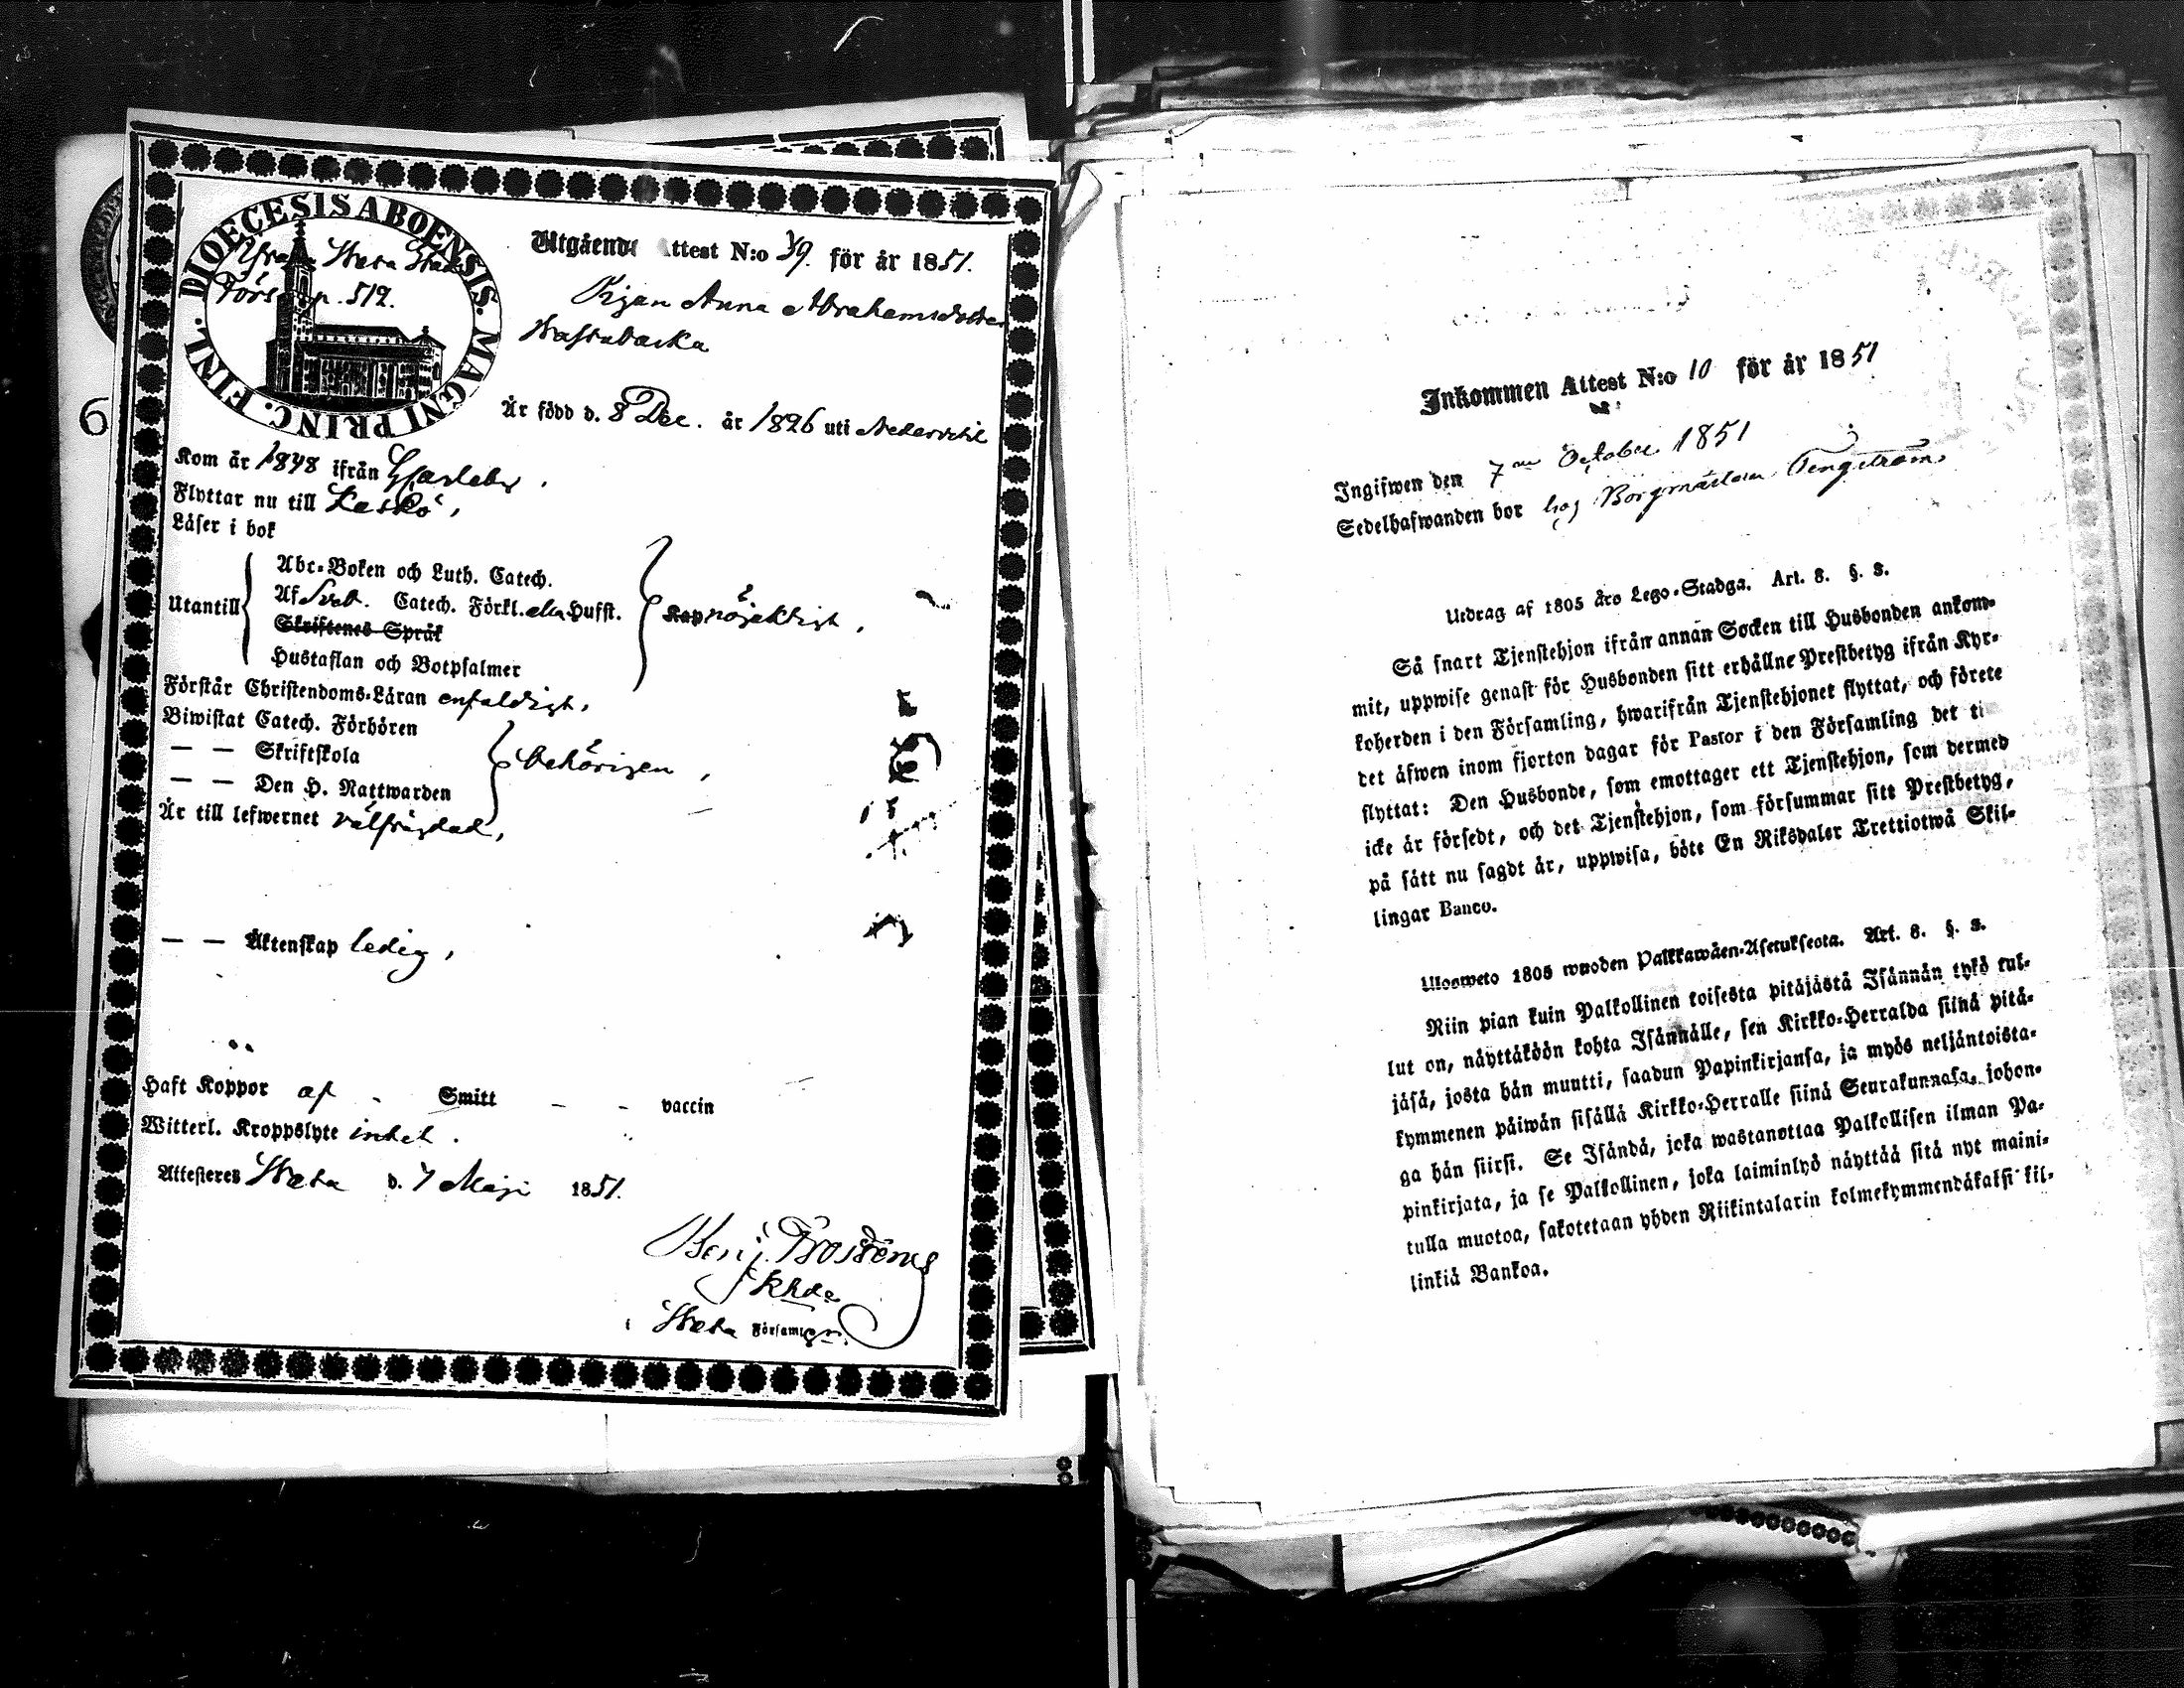 DIOECESIS ABOENSIS. MAGNI PRINC. FINL.
ifrån Wasa Stad
Förs p. 512.
6
Utgående Attest N:o 39. för år 1851.
Pigan Anna Abrahamsdotter
Är född d. 8 Dec. år 1826 uti
Kom år 1848 ifrån
Flyttar nu till Kaskö,
Läser i bok
Utantill
Abc-Boken och Luth. Catech.
Af Sveb. Catech. Förkl. Hufst.
Skriftenes Språk
Hustaflan och Botpsalmer
nöjaktigt,
Förstår Christendoms-Läran enfaldigt,
Biwistat Catech. Förhören
— — Skriftskola
— — Den H. Nattwarden
behörigen,
Är till lefwernet välfrägdad,
— — Äktenskap ledig,
Haft Koppor af - Smitt - - vaccin
Witterl. Kroppslyte intet.
Attesteras Wasa d. 7 Maji 1851.
Benj. Frosterus
Khde
i Wasa Församl.
Inkommen Attest N:o 10 för år 1851
Ingifwen den 7 October 1851
Sedelhafwanden bor hos Borgmästaren Tengström
Utdrag af 1805 års Lego-Stadga. Art. 8. §. 3.
Så snart Tjenstehjon ifrån annan Socken till Husbonden ankom-
mit, uppwise genast för Husbonden sitt erhållne Prestbetyg ifrån Kyr-
koherden i den Församling, hwarifrån Tjenstehjonet flyttat, och förete
det äfwen inom fjorton dagar för Pastor i den Församling det ti
flyttat: Den Husbonde, som emottager ett Tjenstehjon, som dermed
icke är försedt, och det Tjenstehjon, som försummar sitt Prestbetyg,
på sätt nu sagdt är, uppwisa, böte En Riksdaler Trettiotwå Skil-
lingar Banco.
Ulosweto 1805 wuoden Palkkawäen-Asetuksesta. Art. 8. §. 3.
Niin pian kuin Palkollinen toisesta pitäjästä Isännän tykö tul-
lut on, näyttäköön kohta Isännälle, sen Kirkko-Herralda siinä pitä-
jäsä, josta hän muutti, saadun Papinkirjansa, ja myös neljäntoista-
kymmenen päiwän sisällä Kirkko-Herralle siinä Seurakunnasa, johon-
ga hän siirsi. Se Isändä, joka wastanottaa Palkollisen ilman Pa-
pinkirjata, ja se Palkollinen, joka laiminlyö näyttää sitä nyt maini-
tulla muotoa, sakotetaan yhden Riikintalarin kolmekymmendäkaksi kil-
linkiä Bankoa.